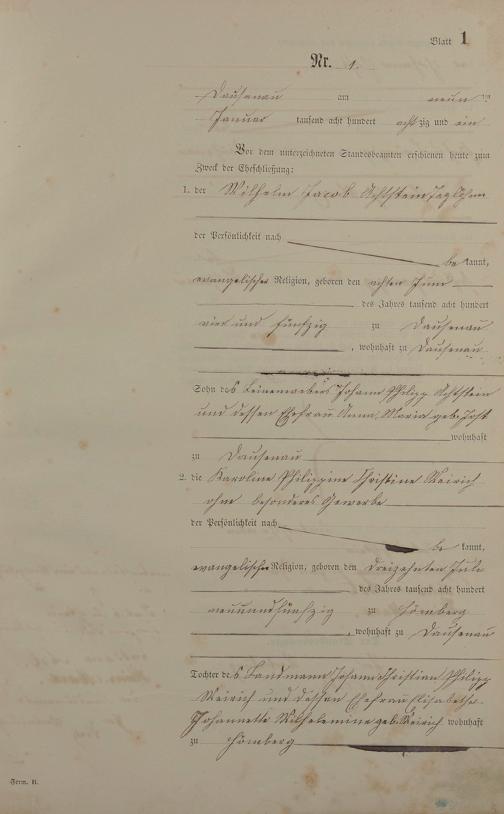 Blatt 1
Nr. 1.
Dausenau am neun ten
Januar tausend acht hundert acht zig und ein
Vor dem unterzeichneten Standesbeamten erschienen heute zum
Zweck der Eheschließung:
1. der Wilhelm Jacob Achtstein Taglöhner
der Persönlichkeit nach
be kannt,
evangelischer Religion, geboren den achten Juni
des Jahres tausend acht hundert
vier und fünfzig zu Dausenau
, wohnhaft zu Dausenau
Sohn des Leinenwebers Johann Philipp Achtstein
und dessen Ehefrau Anna Maria geb. Jost
wohnhaft
zu Dausenau
2. die Karoline Philippine Christine Weirich
ohne besonderes Gewerbe
der Persönlichkeit nach
be kannt,
evangelischer Religion, geboren den dreizehnten Juli
des Jahres tausend acht hundert
neunundfünfzig zu Hömberg
, wohnhaft zu Dausenau
Tochter des Landmann Johann Christian Philipp
Weirich und dessen Ehefrau Elisabethe
Johannette Wilhelmine geb. Weirich wohnhaft
zu Hömberg
Form. B.